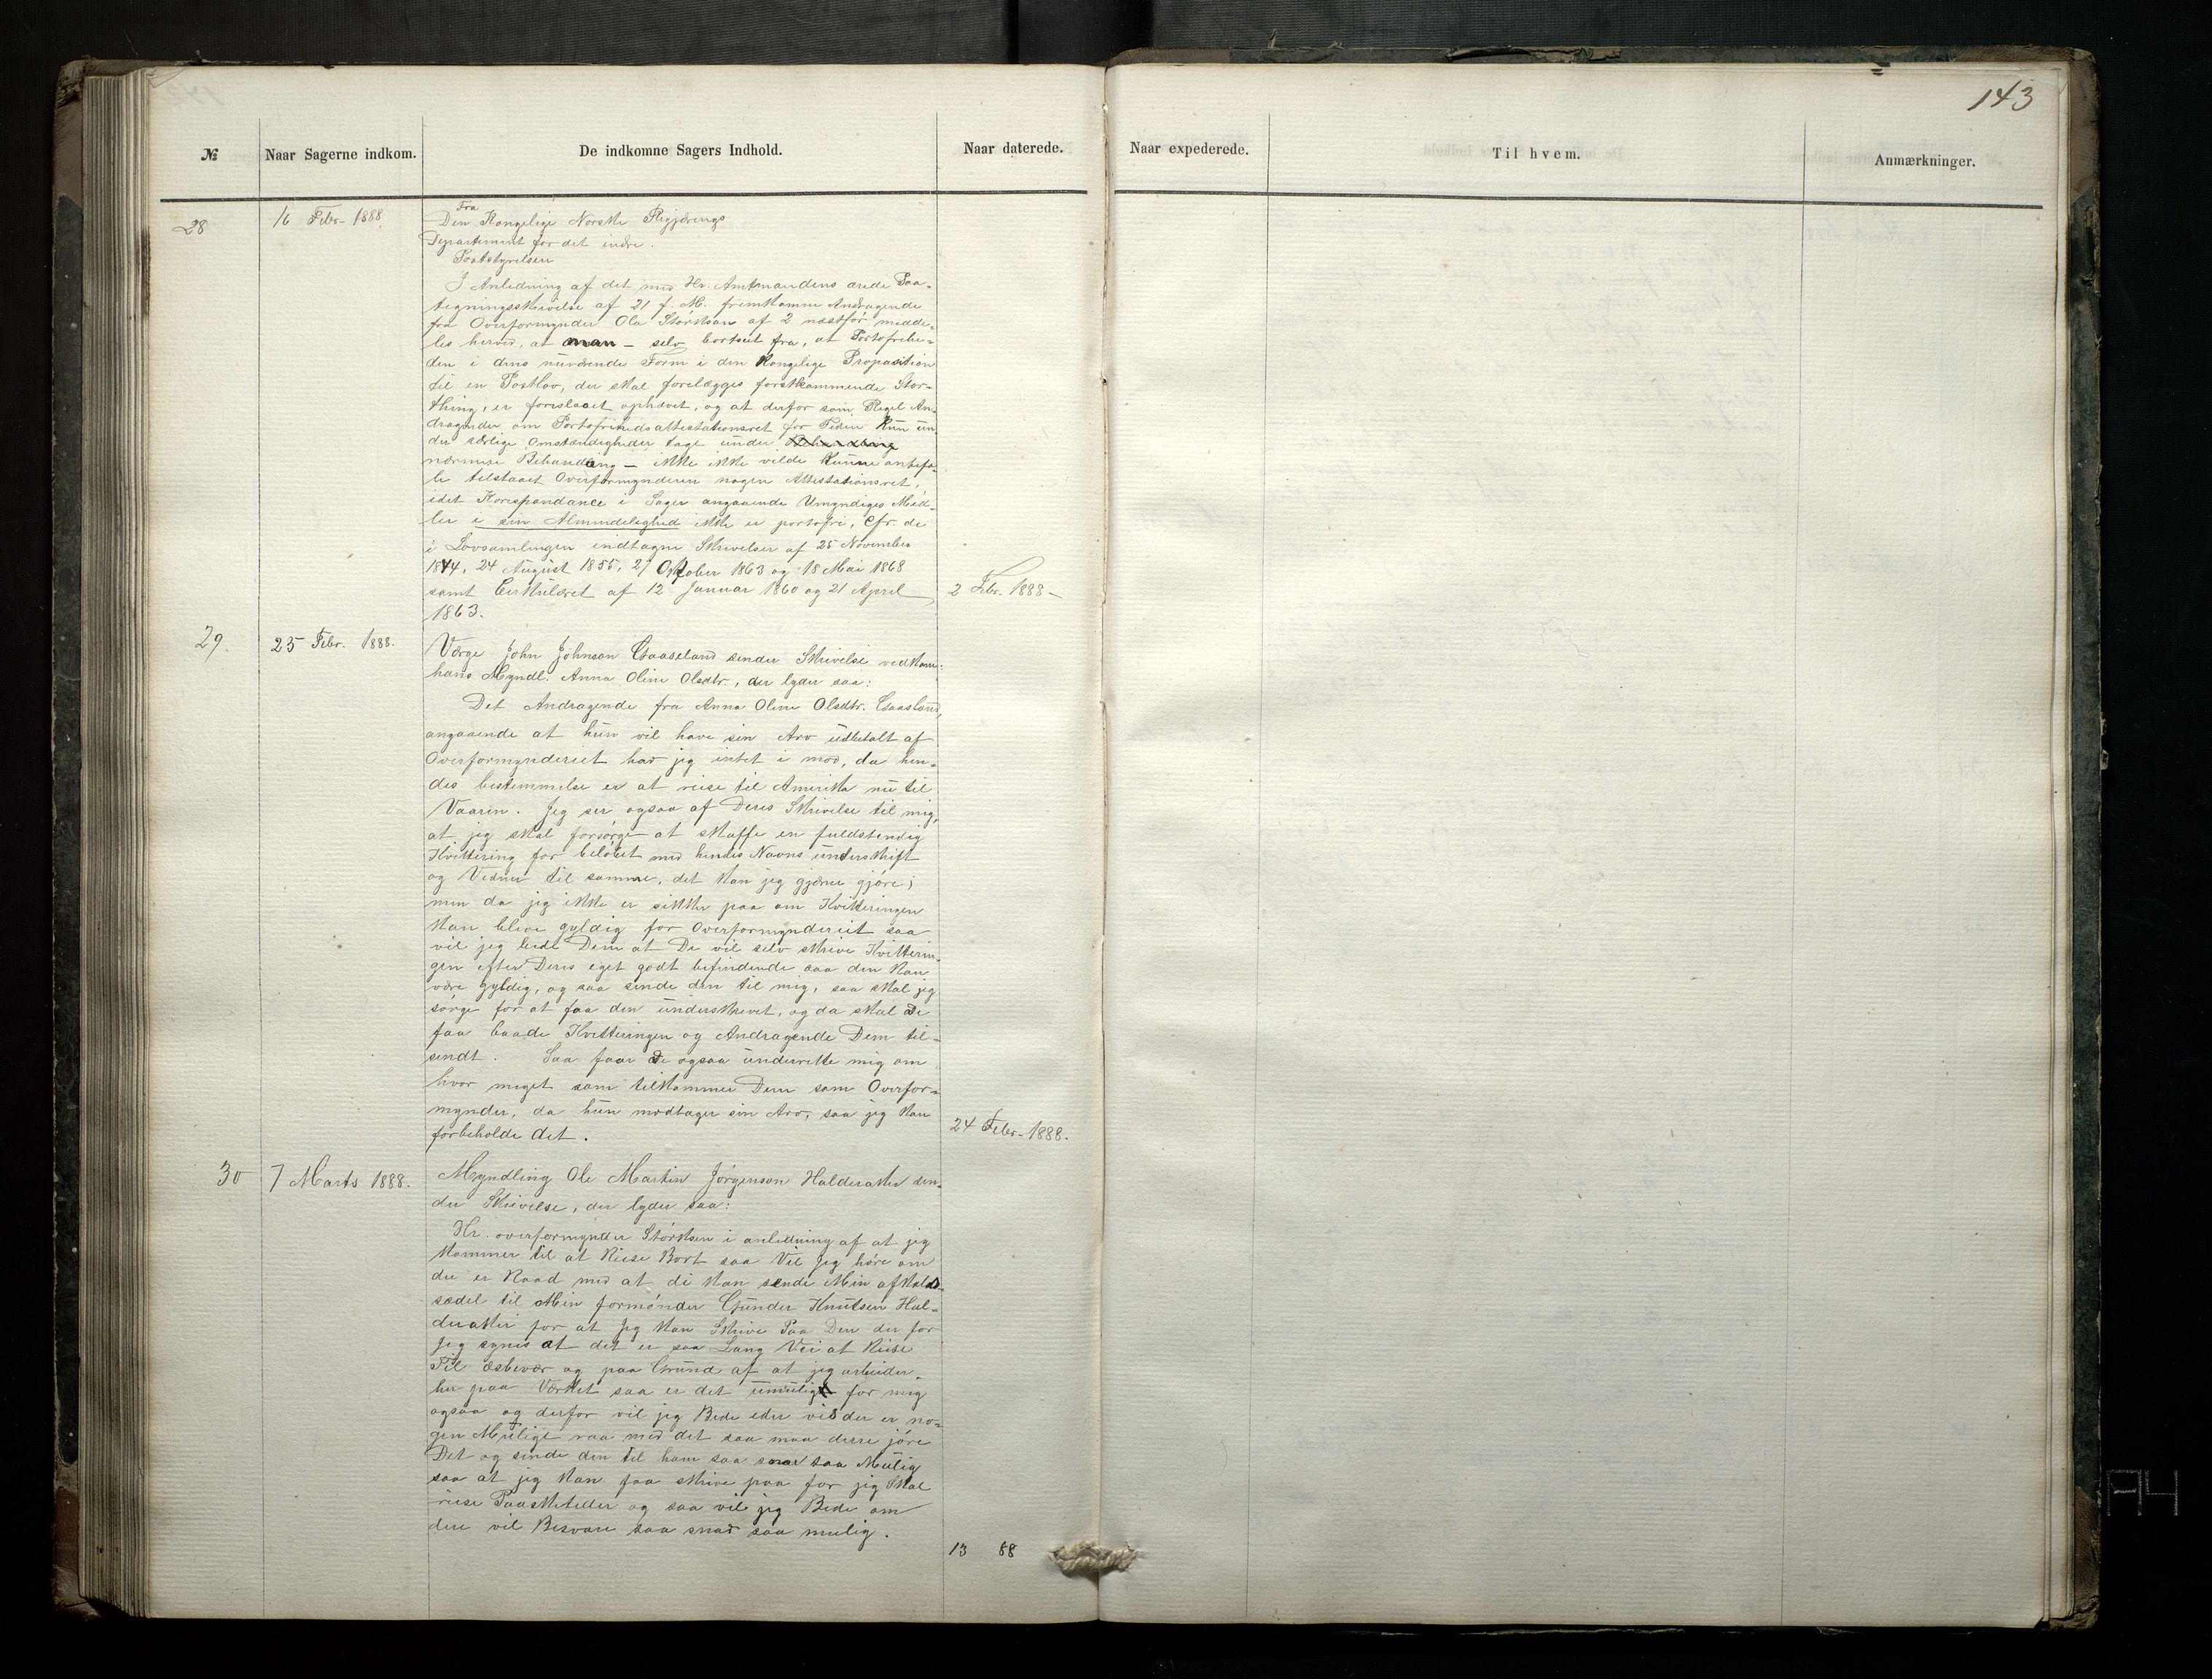 143
№ Naar Sagerne indkom. De indkomne Sagers Indhold. Naar daterede. Naar expederede. Til hvem. Anmærkninger.
28 16 Febr. 1888 Fra
Den Kongelige Norske Regjerings
Departement for det indre.
Poststyrelsen
I Anledning af det med Hr. Amtmandens ærede Paa-
tegningsskrivelse af 21 f. M. fremkomne Andragende
fra Overformynder Ola Störksen af 2 næstfør medde-
les herved, at man – selv bortseet fra, at Portofrihe-
den i dens nuværende Form i den Kongelige Proposition
til en Postlov, der skal forelægges førstkommende Stor-
thing, er foreslaaet ophævet, og at derfor som Regel An-
dragender om Portofriheds attestationsret for Tiden kun un-
der særlige Omstændigheder tage under Behandling
nærmere Behandling – ikke ikke vilde kunne anbefa-
le tilstaaet Overformynderen nogen Attestationsret,
idet Korespondance i Sager angaaende Umyndiges Mid-
ler i sin Almindelighed ikke er portofri, Cfr. de
i Lovsamlingen indtagne Skrivelser af 25 November
1844, 24 August 1855, 27 Oktober 1863 og 18 Mai 1868
samt Cirkulæret af 12 Januar 1860 og 21 April 2 Febr. 1888 –
1863.
29. 25 Febr. 1888. Værge John Johnson Gaaseland sender Skrivelse vedkom:
hans Myndl. Anna Oline Olsdtr., der lyder saa:
Det Andragende fra Anna Oline Olsdtr. Gaasland,
angaaende at hun vil have sin Arv udbetalt af
Overformynderiet har jeg intet i mod, da hen-
des bestemmelse er at reise til Amerika nu til
Vaaren. Jeg ser ogsaa af Deres Skrivelse til mig,
at jeg skal forsørge at skaffe en fuldstendig
Kvittering for beløbet med hendes Navns underskrift
og Vidner til samme, det kan jeg gjerne gjøre;
men da jeg ikke er sikker paa om Kvitteringen
kan blive gyldig for Overformynderiet saa
vil jeg bede Dem at De vil selv skrive Kvitterin-
gen efter Deres eget godt befindende saa den kan
være gyldig, og saa sende den til mig, saa skal jeg
sørge for at faa den underskrevet, og da skal De
faa baade Kvitteringen og Andragende Dem til-
sendt. Saa faar De ogsaa underrette mig om
hvor meget som tilkommer Dem som Overfor-
mynder, da hun modtager sin Arv, saa jeg kan
forbeholde det. 24 Febr. 1888.
30 7 Marts 1888. Myndling Ole Martin Jörgenson Halderaker sen-
der Skrivelse, der lyder saa:
Hr. overformynder Störksen i anledning af at jeg
kommer til at Reise Bort saa Vil Jeg höre om
der er Raad med at di kan sende Min afkalds-
sædel til Min formönder Gunder Knutsen Hal-
deraker for at Jeg kan Skrive Paa Den der for
Jeg synes at det er saa Lang Vei at Reise
Til æsbevær og paa Grund af at jeg arbeider
her paa Værket saa er det umuligt for mig
ogsaa og derfor vil jeg Bede eder vis der er no-
gen Muligt raa med det saa maa dere jöre
Det og sende den til ham saa snar saa Mulig
saa at jeg kan faa skrive paa for jeg Skal
reise Paasketider og saa vil jeg Bede om
dere vil Besvare saa snar saa mulig.
13 88